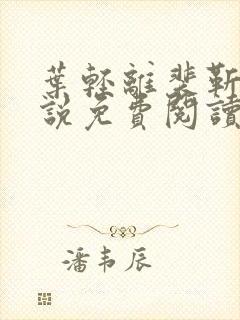 葉輕離裴靳
說免費閱讀
潘韦辰